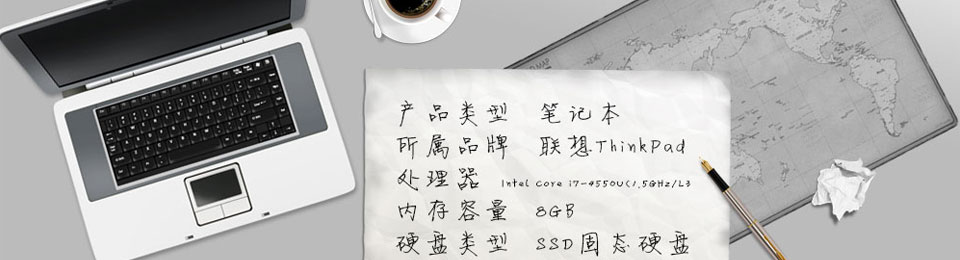 产品类型 笔记本
所属品牌 联想ThinkPad
处理器 Intel Core i7-4550U(1.5GHz/L3
内存容量 8GB
硬盘类型 SSD固态硬盘